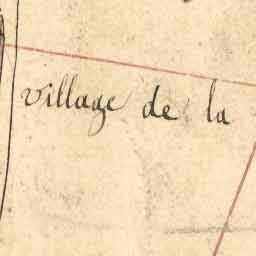 village de la